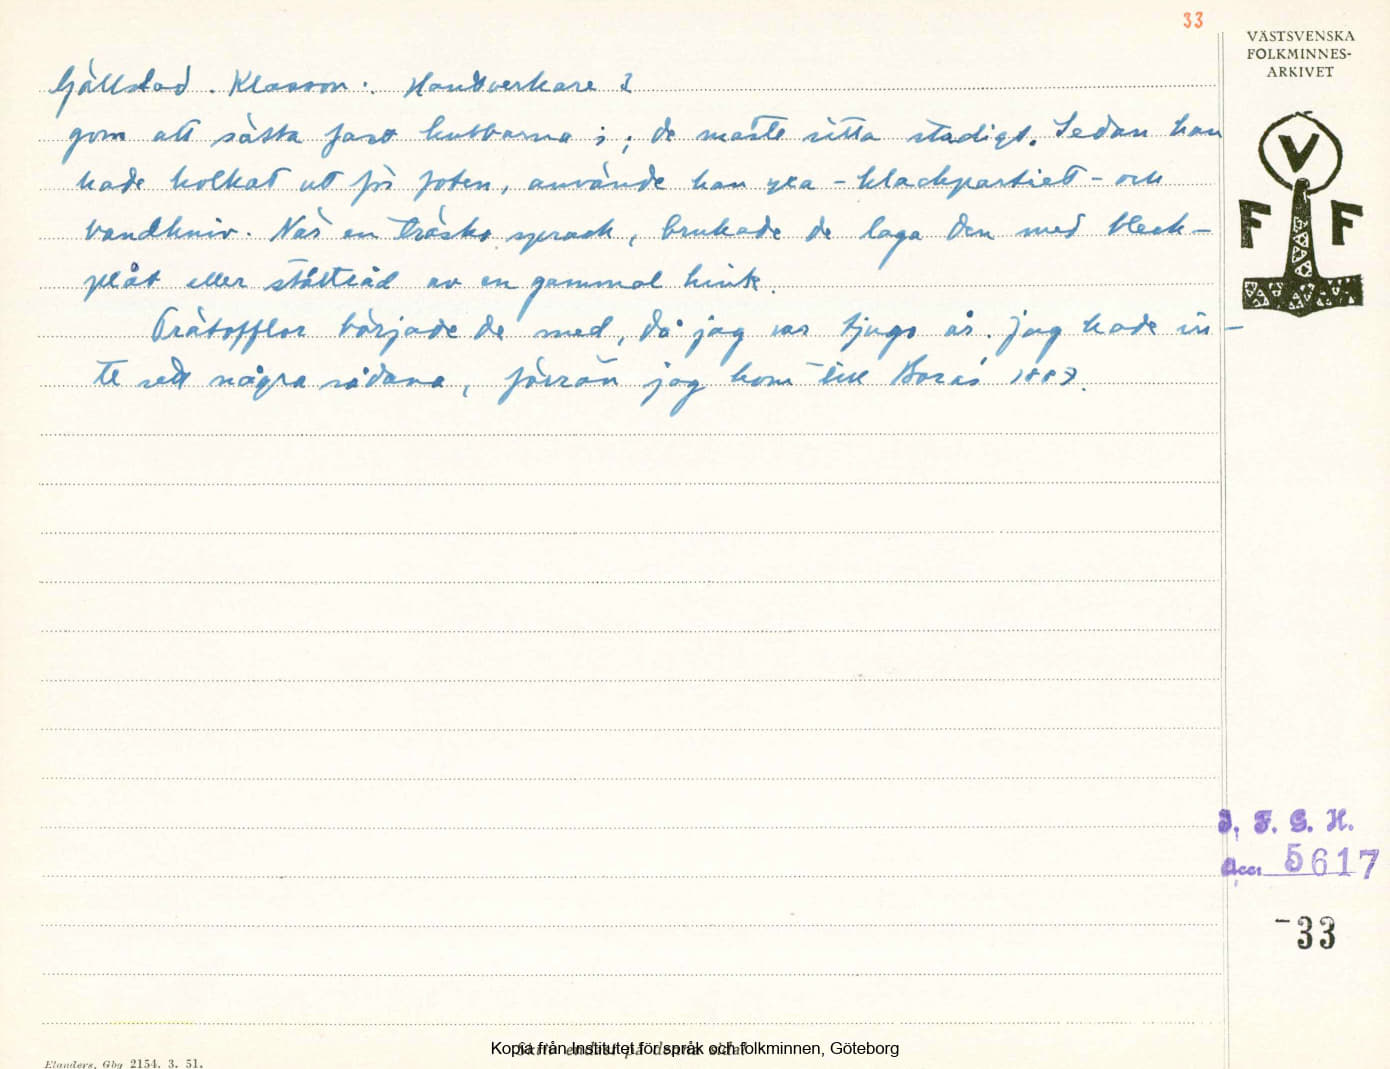 33
VÄSTSVENSKA
FOLKMINNES-
ARKIVET
V
F F
Gällstad. Klasson: Hantverkare 3
gom att sätta fast kubbarna i; de måste sitta stadigt. Sedan han
hade holkat ut för foten, använde han yxa - klackpartiet - och
bandkniv. När en träsko sprack, brukade de laga den med bleck-
plåt eller ståltråd av en gammal hink.
Trätofflor började de med, då jag var tjugo år. Jag hade in-
te sett några sådana, förrän jag kom till Borås 1887.
I. F. G. H.
Acc. 5617
-33
Skriv endast på denna sida!
Kopia från Institutet för språk och folkminnen, Göteborg
Elanders, Gbg 2154. 3. 51.